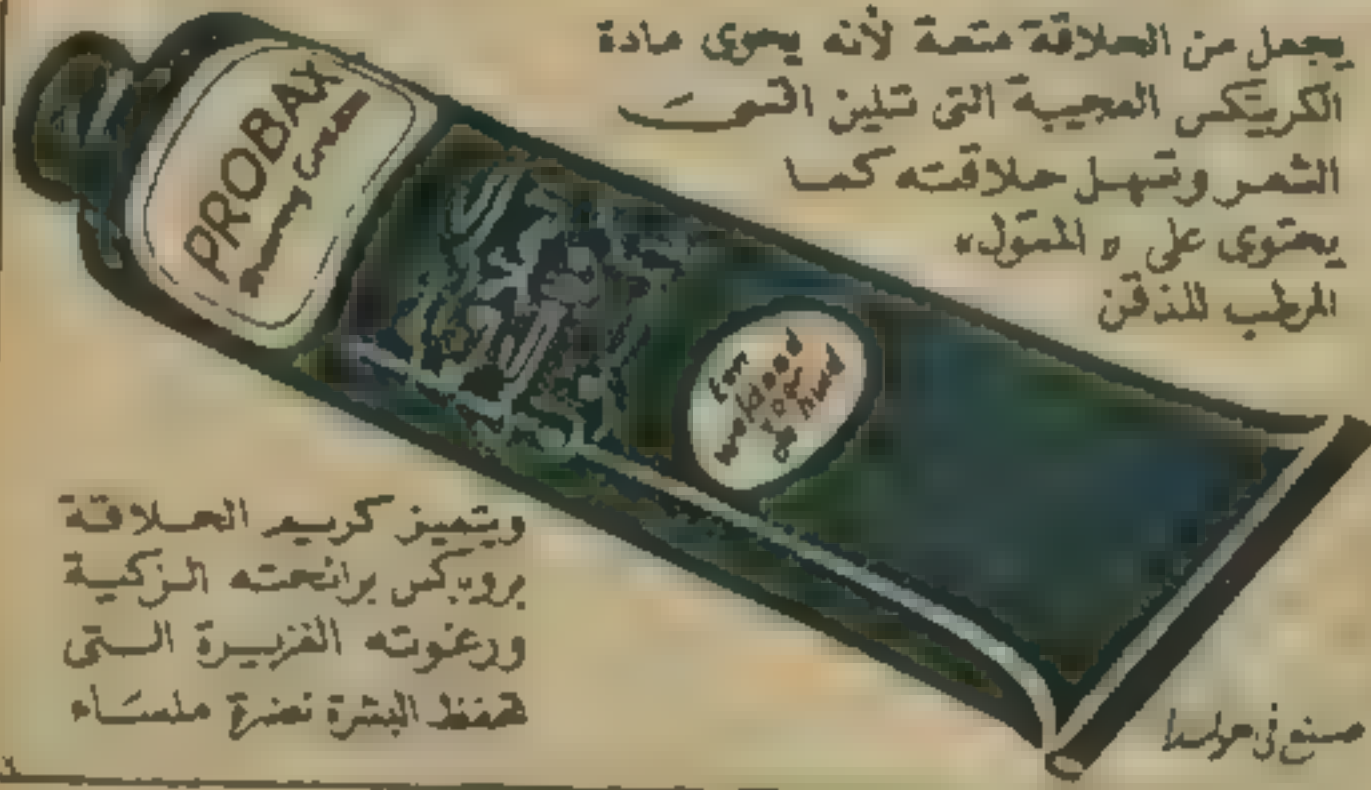 يجعل من الحلاقة متعة لأنه يحوى مادة
الكريتكس العجيبة التى تلين
الشعر وتسهل حلاقته كما
يحتوى على «
المرطب للذقن
PROBAX
Shaving Cream
ويتميز كريم الحلاقة
بروبكس برائحته الزكية
ورغوته الغزيرة التى
تحفظ البشرة نضرة ملساء
صنع فى هولندا